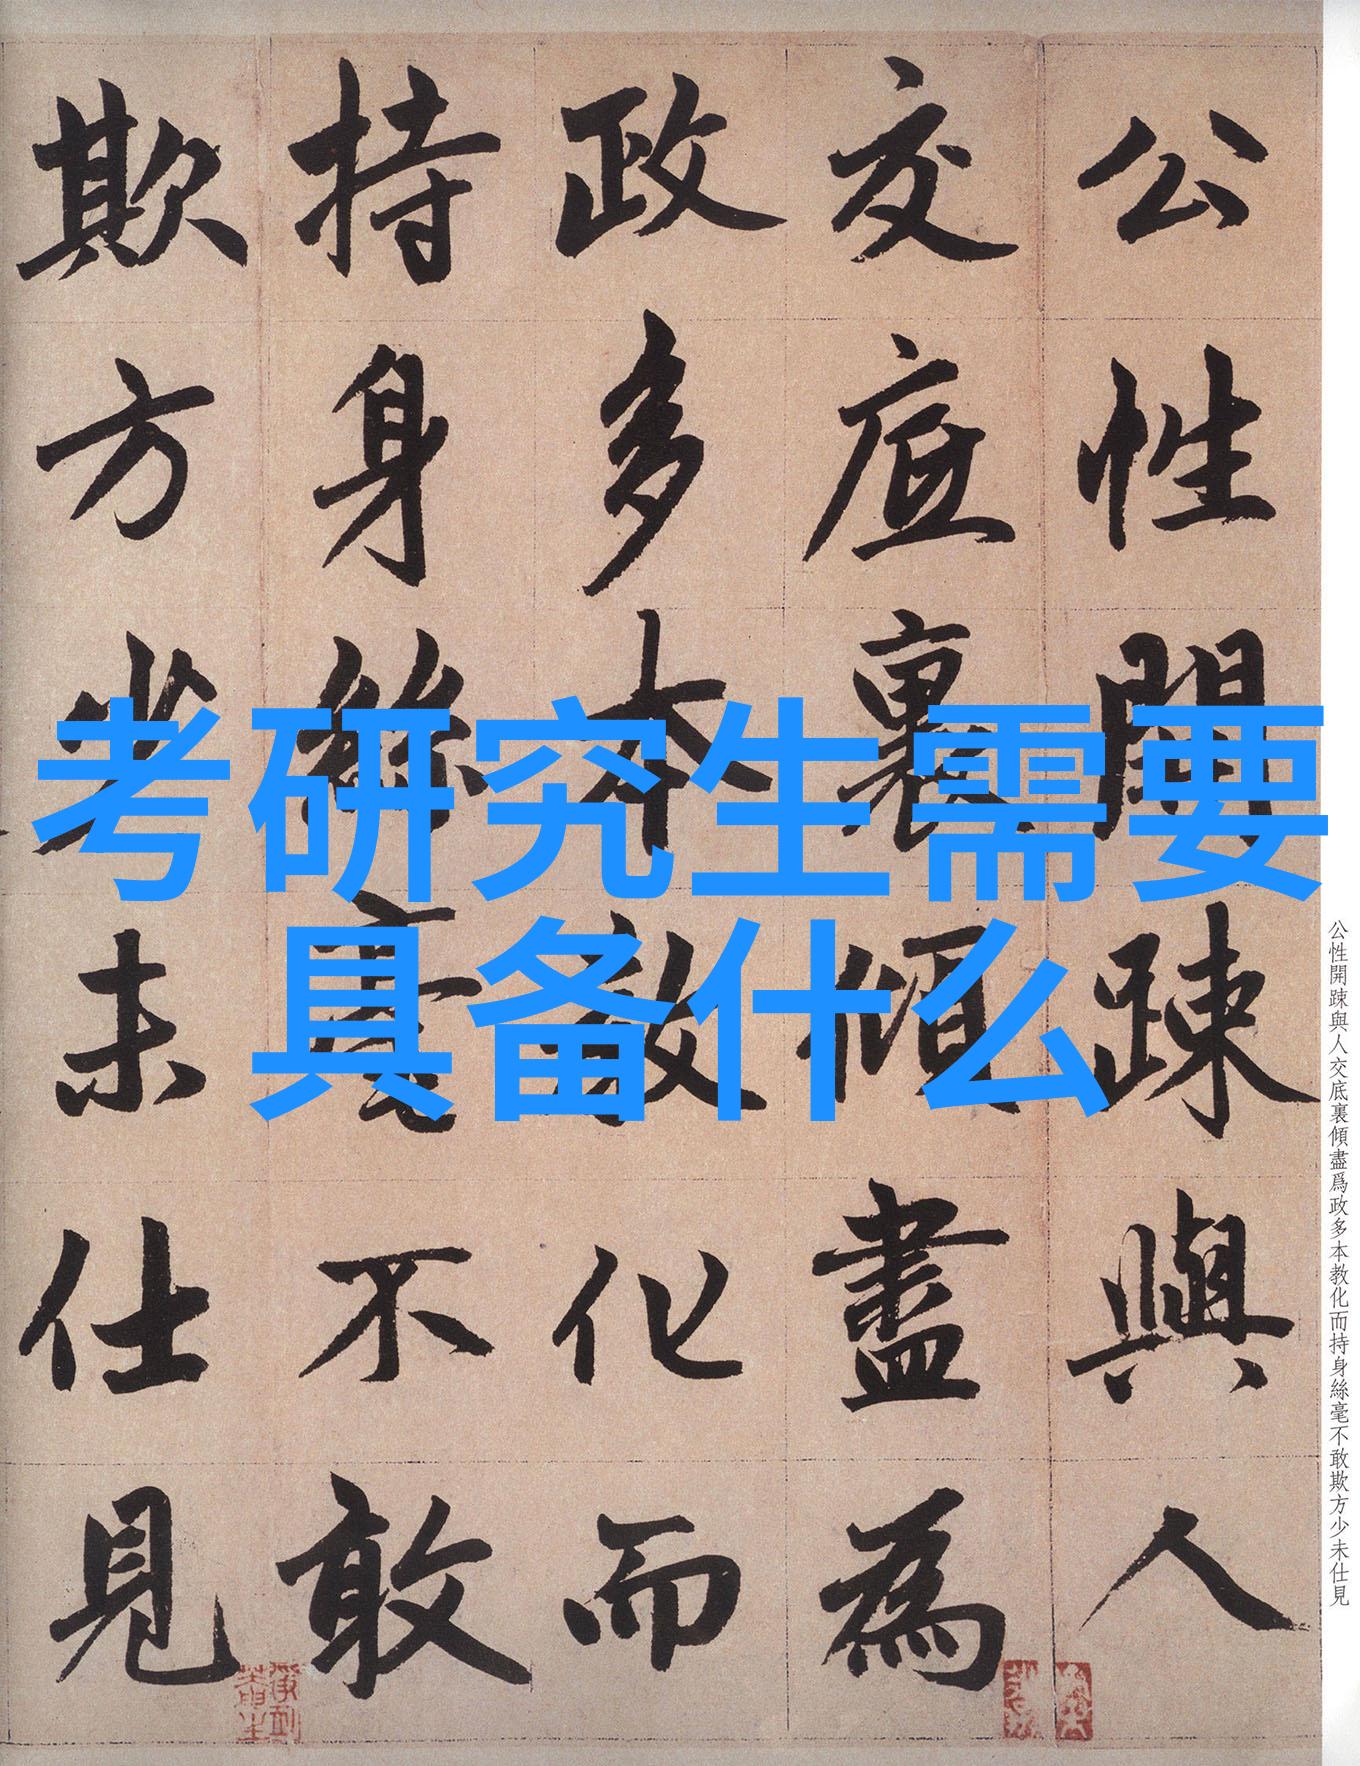 考研究生需要
具备什么
公性開踈與人
交底裏傾盡為
政多本教化而
持身絲毫不敢
欺方少未仕見
公性開踈與人交底裏傾盡爲政多本教化而持身絲毫不敢欺方少未仕見